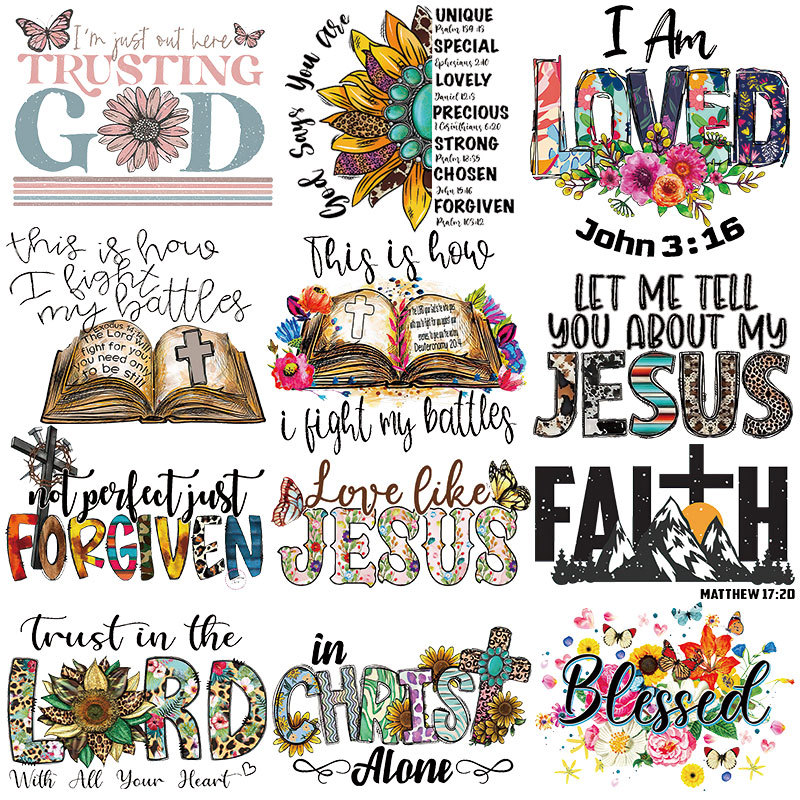 I'm just out here
TRUSTING
GOD
God Says You are
UNIQUE
Psalm 139:13
SPECIAL
Ephesians 2:10
LOVELY
Daniel 12:3
PRECIOUS
1 Corinthians 6:20
STRONG
Psalm 18:35
CHOSEN
John 15:16
FORGIVEN
Psalm 103:12
I Am
LOVED
John 3:16
this is how
I fight
my battles
Exodus 14:14
The Lord will
fight for you
you need only
to be still
This is how
the LORD your God is the one who goes
with you to fight for you against your
enemies, to give you the victory.
Deuteronomy 20:4
i fight my battles
LET ME TELL
YOU ABOUT MY
JESUS
not perfect just
FORGIVEN
Love like
JESUS
FAITH
MATTHEW 17:20
trust in the
LORD
With All Your Heart
in
CHRIST
Alone
Blessed